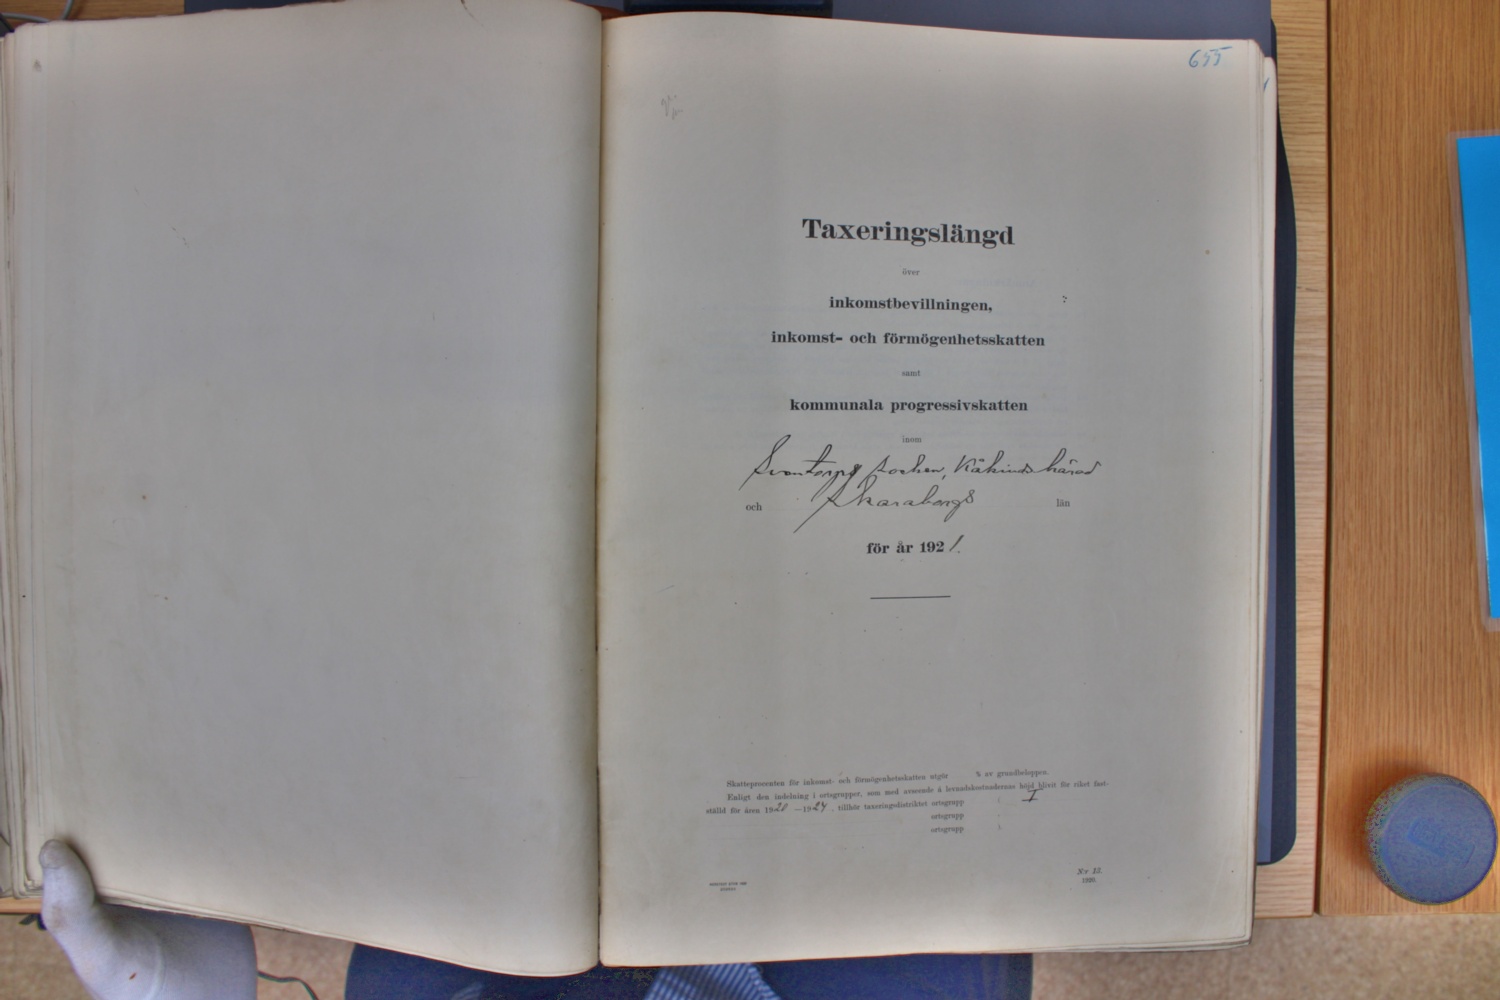 655
Taxeringslängd
över
inkomstbevillningen,
inkomst- och förmögenhetsskatten
samt
kommunala progressivskatten
inom
Sventorps socken, Kåkinds härad
och Skaraborgs län
för år 1921.
Skatteprocenten för inkomst- och förmögenhetsskatten utgör % av grundbeloppen.
Enligt den indelning i ortsgrupper, som med avseende å levnadskostnadernas höjd blivit för riket fast-
ställd för åren 1920—1924, tillhör taxeringsdistriktet ortsgrupp I
ortsgrupp
ortsgrupp
Nr 13.
1920.